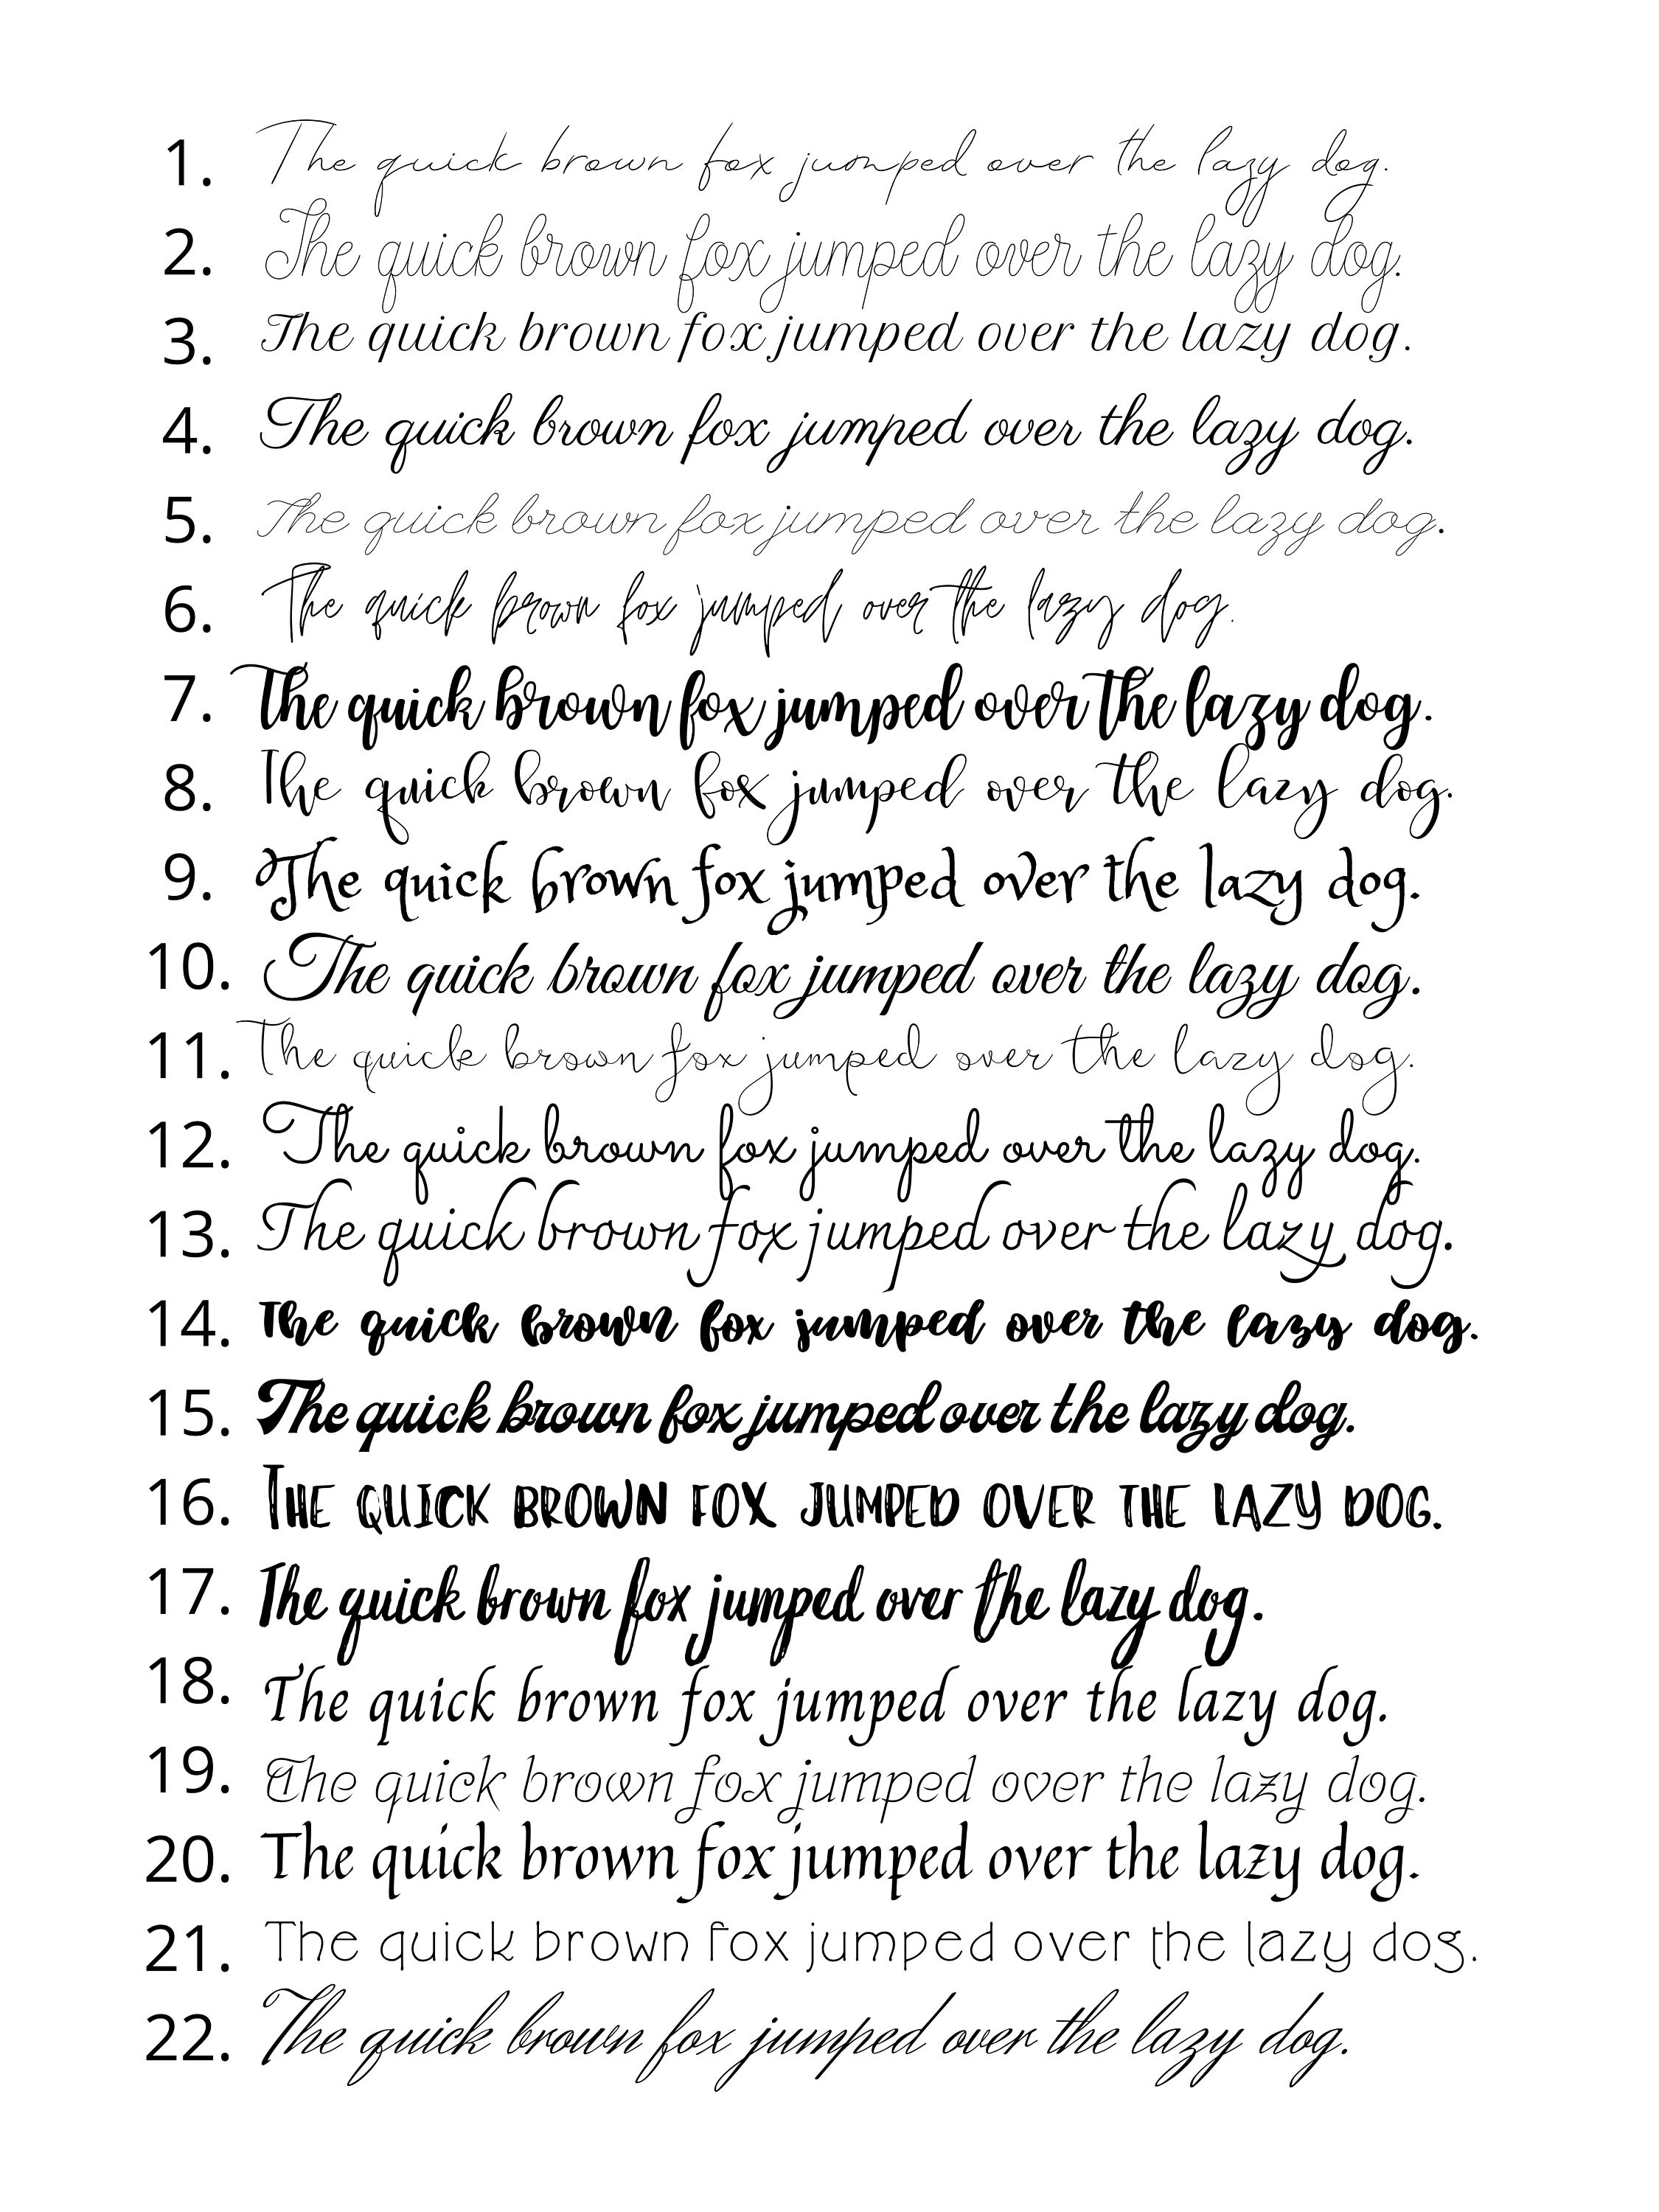 1. The quick brown fox jumped over the lazy dog.
2. The quick brown fox jumped over the lazy dog.
3. The quick brown fox jumped over the lazy dog.
4. The quick brown fox jumped over the lazy dog.
5. The quick brown fox jumped over the lazy dog.
6. The quick brown fox jumped over the lazy dog.
7. The quick brown fox jumped over the lazy dog.
8. The quick brown fox jumped over the lazy dog.
9. The quick brown fox jumped over the lazy dog.
10. The quick brown fox jumped over the lazy dog.
11. The quick brown fox jumped over the lazy dog.
12. The quick brown fox jumped over the lazy dog.
13. The quick brown fox jumped over the lazy dog.
14. The quick brown fox jumped over the lazy dog.
15. The quick brown fox jumped over the lazy dog.
16. THE QUICK BROWN FOX JUMPED OVER THE LAZY DOG.
17. The quick brown fox jumped over the lazy dog.
18. The quick brown fox jumped over the lazy dog.
19. The quick brown fox jumped over the lazy dog.
20. The quick brown fox jumped over the lazy dog.
21. The quick brown fox jumped over the lazy dog.
22. The quick brown fox jumped over the lazy dog.